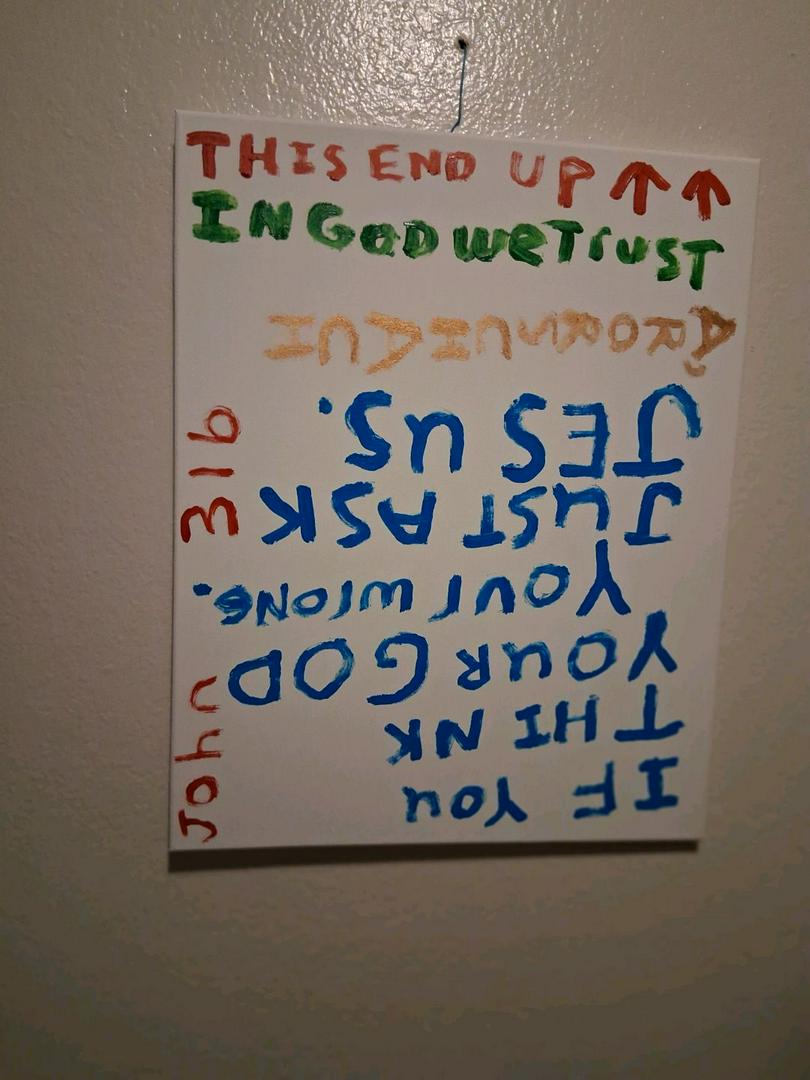 THIS END UP ↑↑
IN GOD weTrUST
IF You
THINK
YOUR GOD
YOUr WrONG.
JUST ASK
JESUS.
John 316